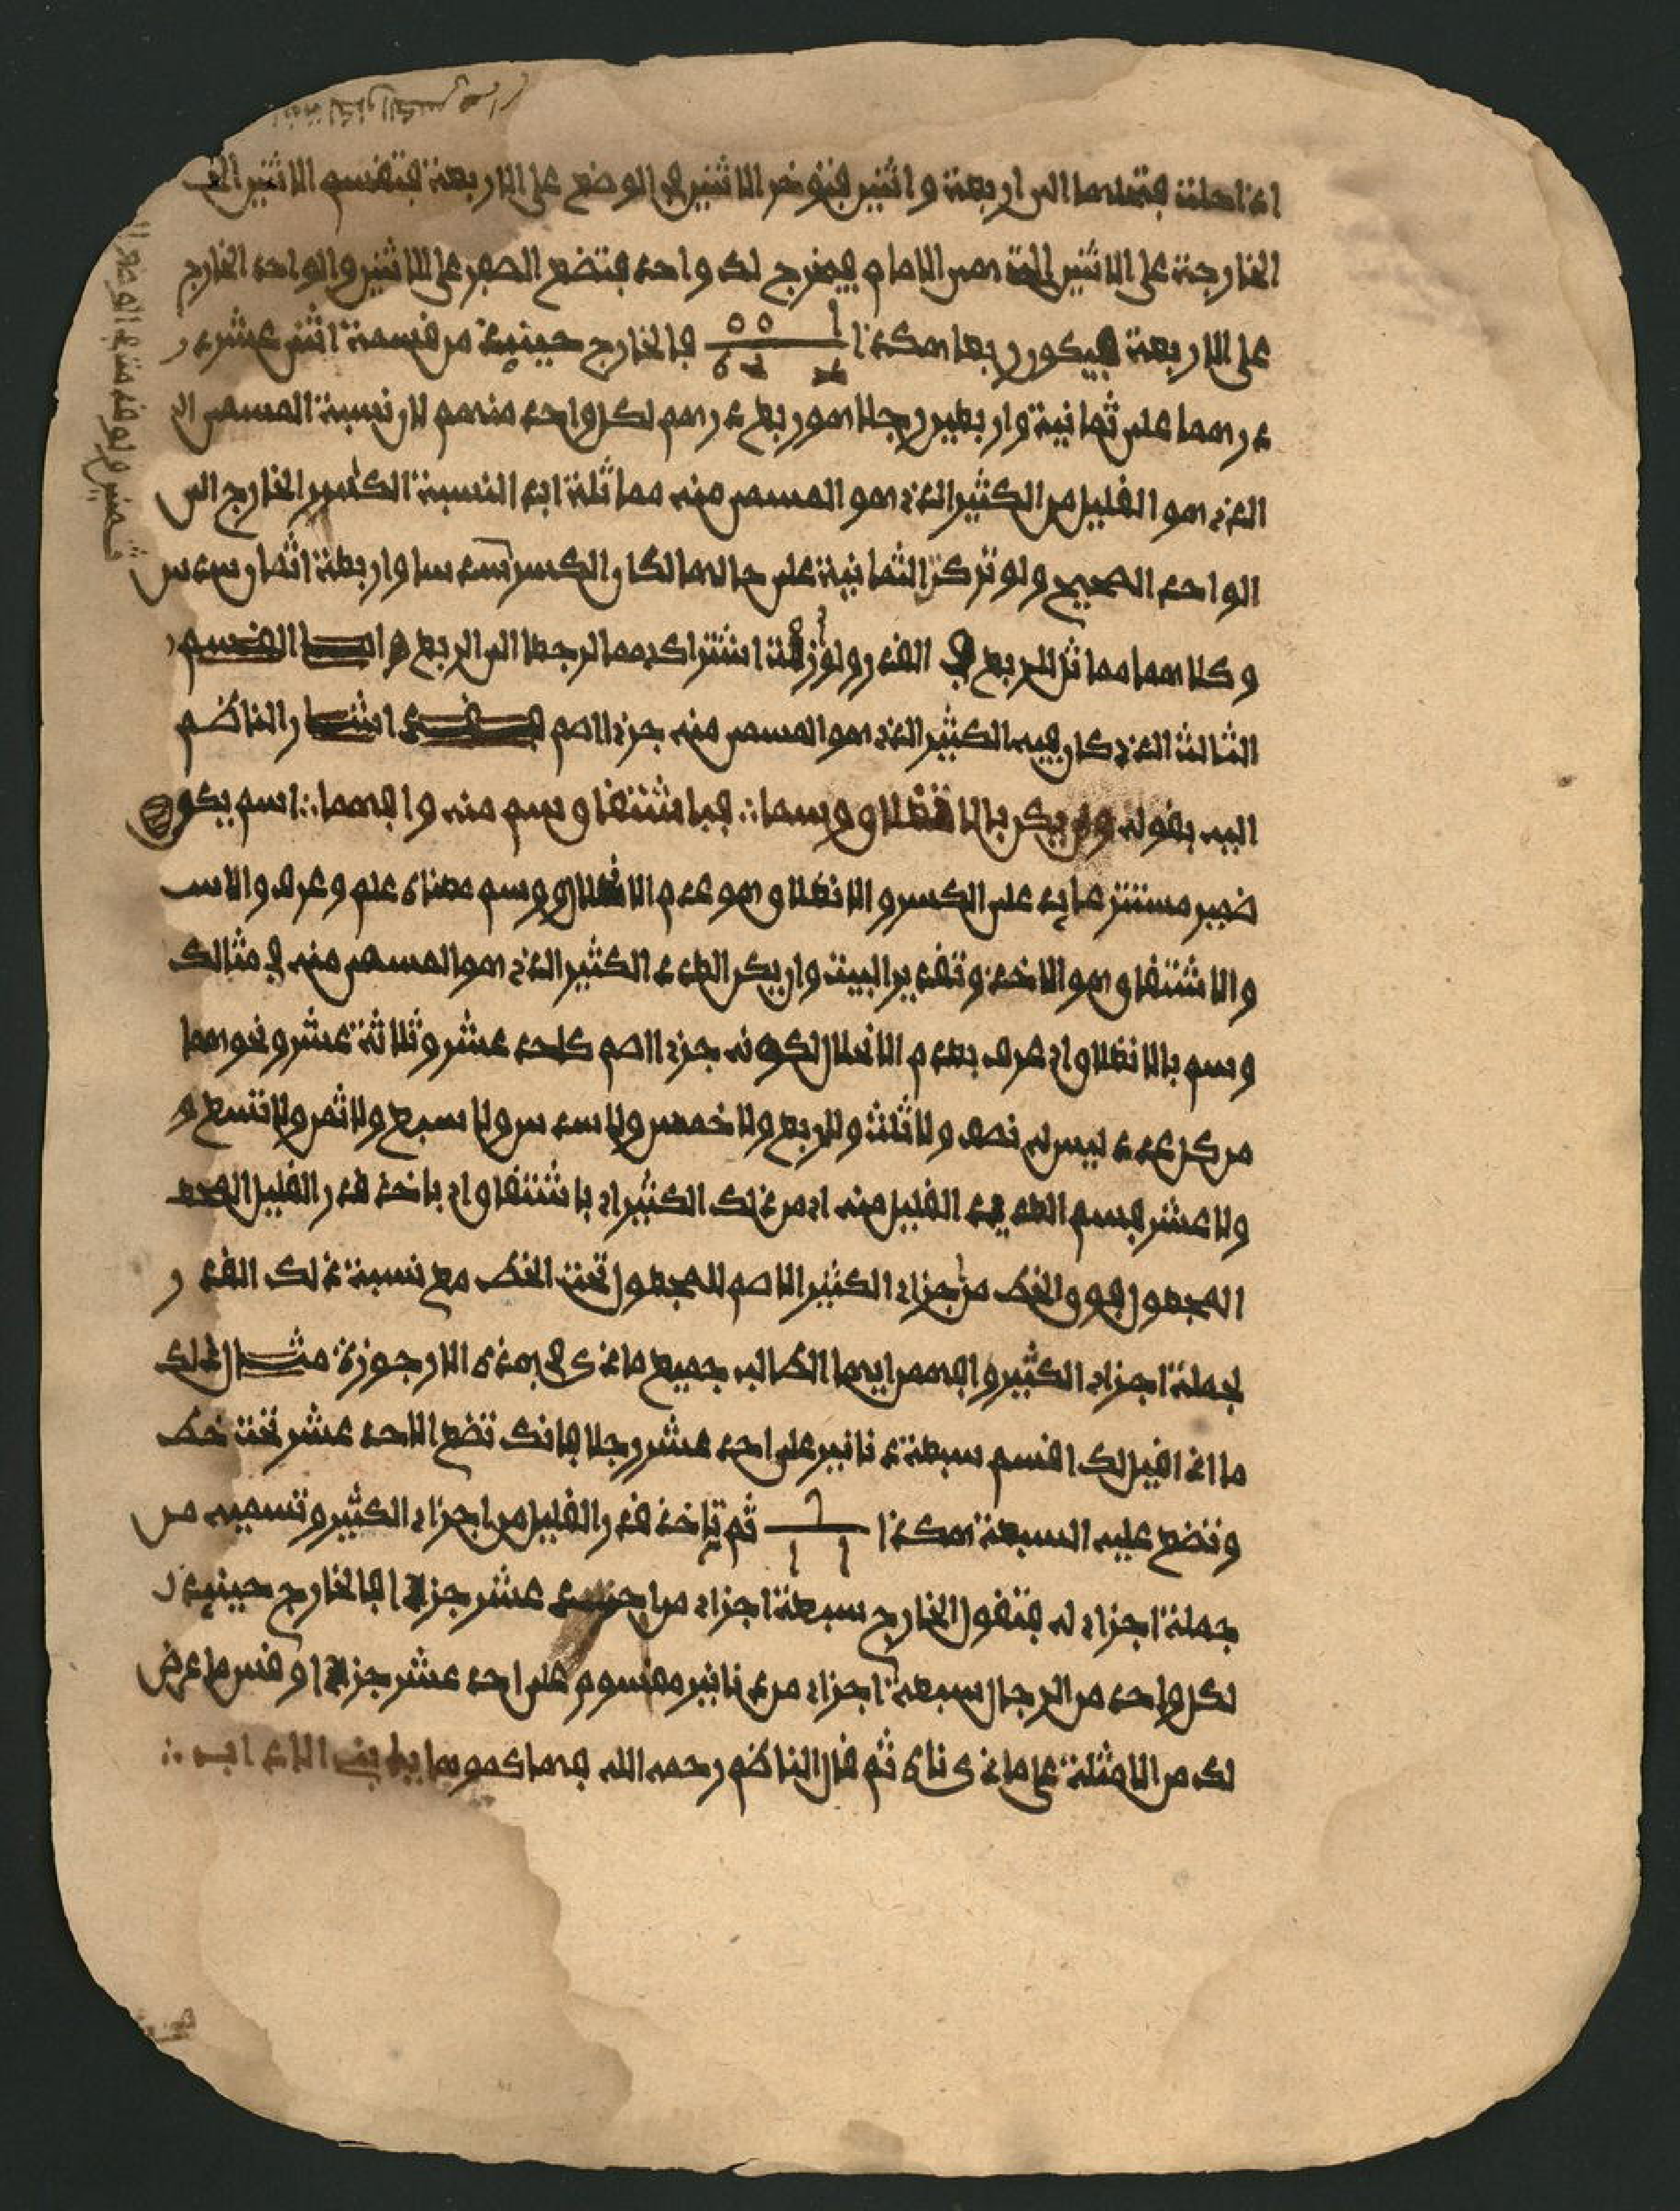 اذا حلته فتحلهما الى اربعة واثنين فتوخر الاثنين في الوضع على الاربعة فتقسم الاثنين
الخارجة على الاثنين التي هي الامام فيخرج لك واحد فتضع الصفر على الاثنين والواحد الخارج
على الاربعة فيكون ربعا هكذا فالخارج حينيذ من قسمة اثنى عشر
درهما على ثمانية واربعين رجلا هو ربع درهم لكل واحد منهم لان نسبة المسمى
الذى هو القليل من الكثير الذى هو المسمى منه مماثلة ابدا لنسبة الكسر الخارج الى
الواحد الصحيح ولو تركت الثمانية على حالها لكان الكسر سدسا واربعة اثمان سدس
وكلاهما مماثل للربع في القدر ولو ازلت اشتراكهما لرجعا الى الربع واما القسم
الثالث الذى كان فيه الكثير الذى هو المسمى منه جزءا اصم اشار الناظم
اليه بقوله وان يكن بالانغلاق وسما ∴ فباشتقاق سم منه وافهما ∴ اسم يكون
ضمير مستتر عايد على الكسر والانغلاق وهو عدم الانحلال ووسم معناه علم وعرف والاسـ
والاشتقاق وهو الاخذ وتقدير البيت وان يكن العدد الكثير الذى هو المسمى منه في مثالك
وسم بالانغلاق اى عرف بعدم الانحلال لكونه جزءا اصم كاحد عشر وثلاثة عشر ونحوهما
من كل عدد ليس له نصف ولا ثلث ولا ربع ولا خمس ولا سدس ولا سبع ولا ثمن ولا تسع و
ولا عشر فسم العدد القليل منه اى من ذلك الكثير اى باشتقاق اى باخذ قدر القليل
المجعول فوق الخط من اجزاء الكثير الاصم المجعول تحت الخط مع نسبة ذلك القدر
لجملة اجزاء الكثير وافهمن ايها الطالب جميع ما ذكر في هذه الارجوزة مثال ذلك
ما اذا قيل لك اقسم سبعة دنانير على احد عشر رجلا فانك تضع الاحد عشر تحت خط
وتضع عليه السبعة هكذا ثم تاخذ قدر القليل من اجزاء الكثير وتسميه من
جملة اجزاء له فتقول الخارج سبعة اجزاء من احد عشر جزءا فالخارج حينيذ
لكل واحد من الرجال سبعة اجزاء من دنانير مقسوم على احد عشر جزءا وقس ما عرض
لك من الامثلة على ما ذكرناه ثم قال الناظم رحمه الله فهاكموها يا الاداب ∴